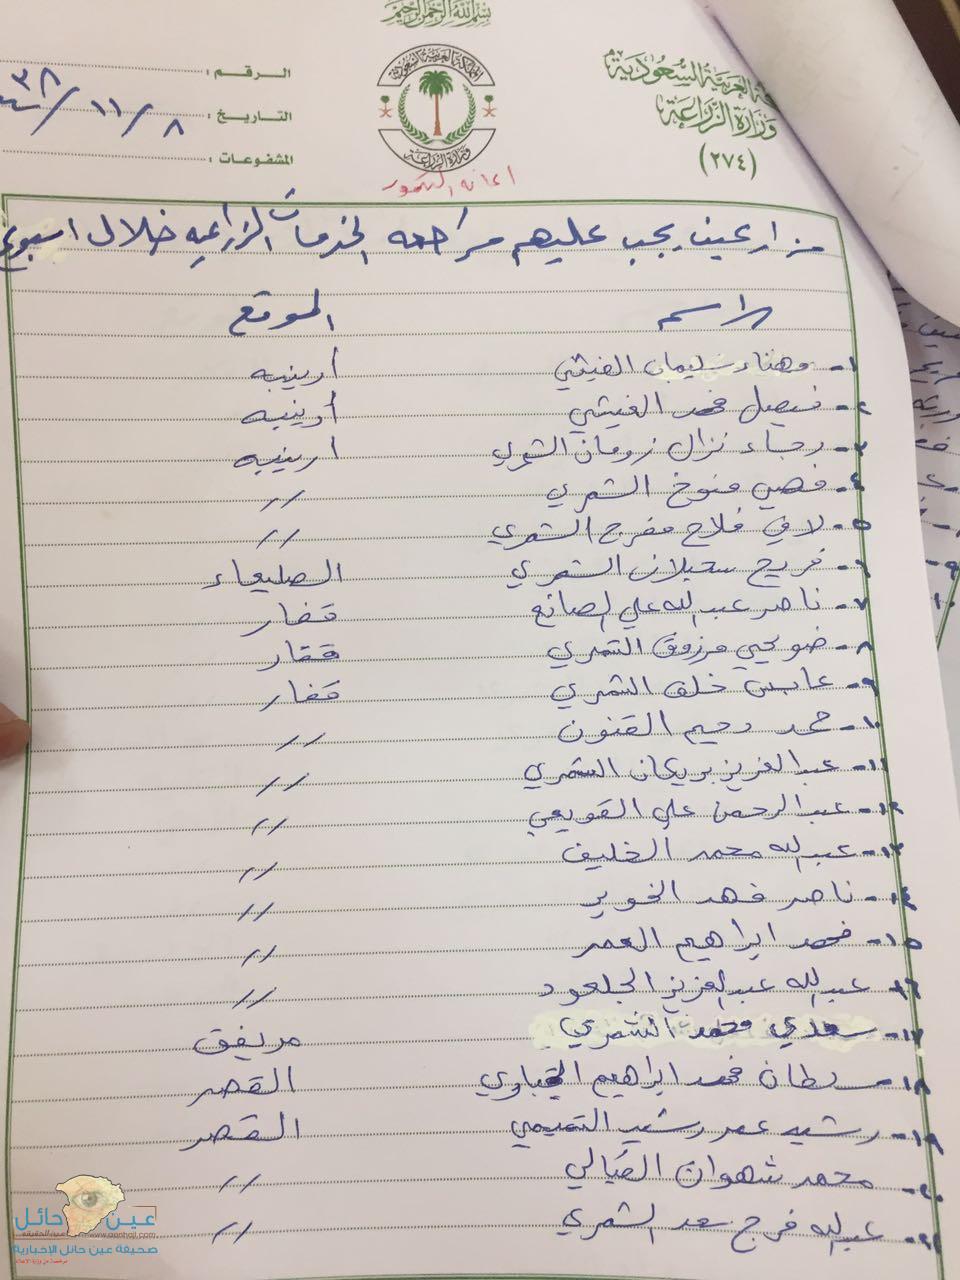 بسم الله الرحمن الرحيم
العربية السعودية
وزارة الزراعة
(٢٧٤)
المملكة العربية السعودية
وزارة الزراعة
الرقم :
التاريخ : ٨ / ١١ / ٣٨
المشفوعات :
اعانه التمور
مزارعين يجب عليهم مراجعه الخدمات الزراعيه خلال اسبوع
الاسم الموقع
١- مهناء سليمان الغيثي أرينبه
٢- فيصل فهد الغيثي أرينبه
٣- رجاء نزال زومان الشمري ارينبه
٤- فصي فنوخ الشمري //
٥- لافي فلاح مفرج الشمري //
٦- فريح سحيلان الشمري الصليعاء
٧- ناصر عبدالله علي الصانع قفار
٨- ضويحي مرزوق الشمري قفار
٩- عايس خلف الشمري قفار
١٠- حمد دحيم القنون //
١١- عبدالعزيز بريكان الشمري //
١٢- عبدالرحمن علي القويعي //
١٣- عبدالله محمد الخليف //
١٤- ناصر فهد الخوير //
١٥- فهد ابراهيم العمر //
١٦- عبدالله عبدالعزيز الجلعود //
١٧- سعدي محمد الشمري مريفق
١٨- سلطان فهد ابراهيم القصر
١٩- رشيد عمر رشيد التميمي القصر
٢٠- محمد شهوان //
٢١- عبدالله فرج سعد الشمري //
عين حائل
عين الحقيقة
www.aenhail.com
صحيفة عين حائل الإخبارية
مرخصة من وزارة الإعلام